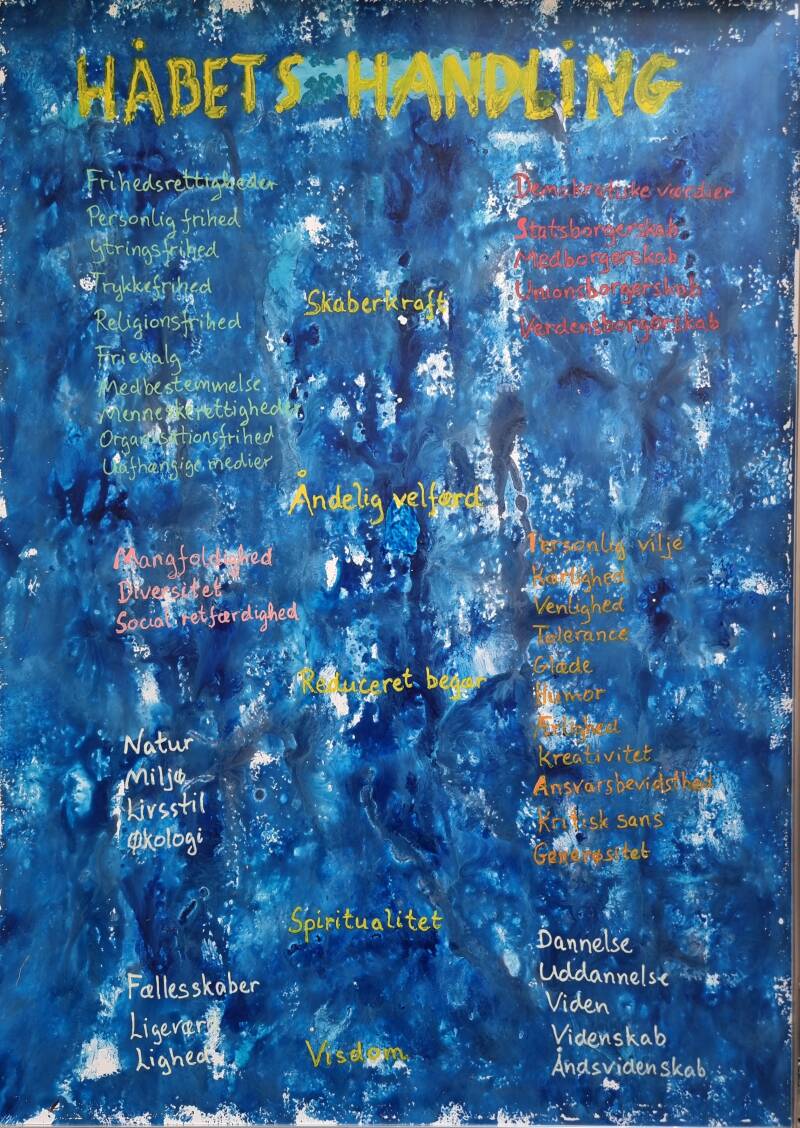 HÅBETS HANDLING
Frihedsrettigheder
Personlig frihed
Ytringsfrihed
Trykkefrihed
Religionsfrihed
Frievalg
Medbestemmelse
Menneskerettigheder
Organisationsfrihed
Uafhængige medier
Mangfoldighed
Diversitet
Social retfærdighed
Natur
Miljø
Livsstil
Økologi
Fællesskaber
Ligeværd
Lighed
Skaberkraft
Åndelig velfærd
Reduceret begær
Spiritualitet
Visdom
Demokratiske værdier
Statsborgerskab
Medborgerskab
Unionsborgerskab
Verdensborgerskab
Personlig vilje
Kærlighed
Venlighed
Tolerance
Glæde
Humor
Ærlighed
Kreativitet
Ansvarsbevidsthed
Kritisk sans
Generøsitet
Dannelse
Uddannelse
Viden
Videnskab
Åndsvidenskab